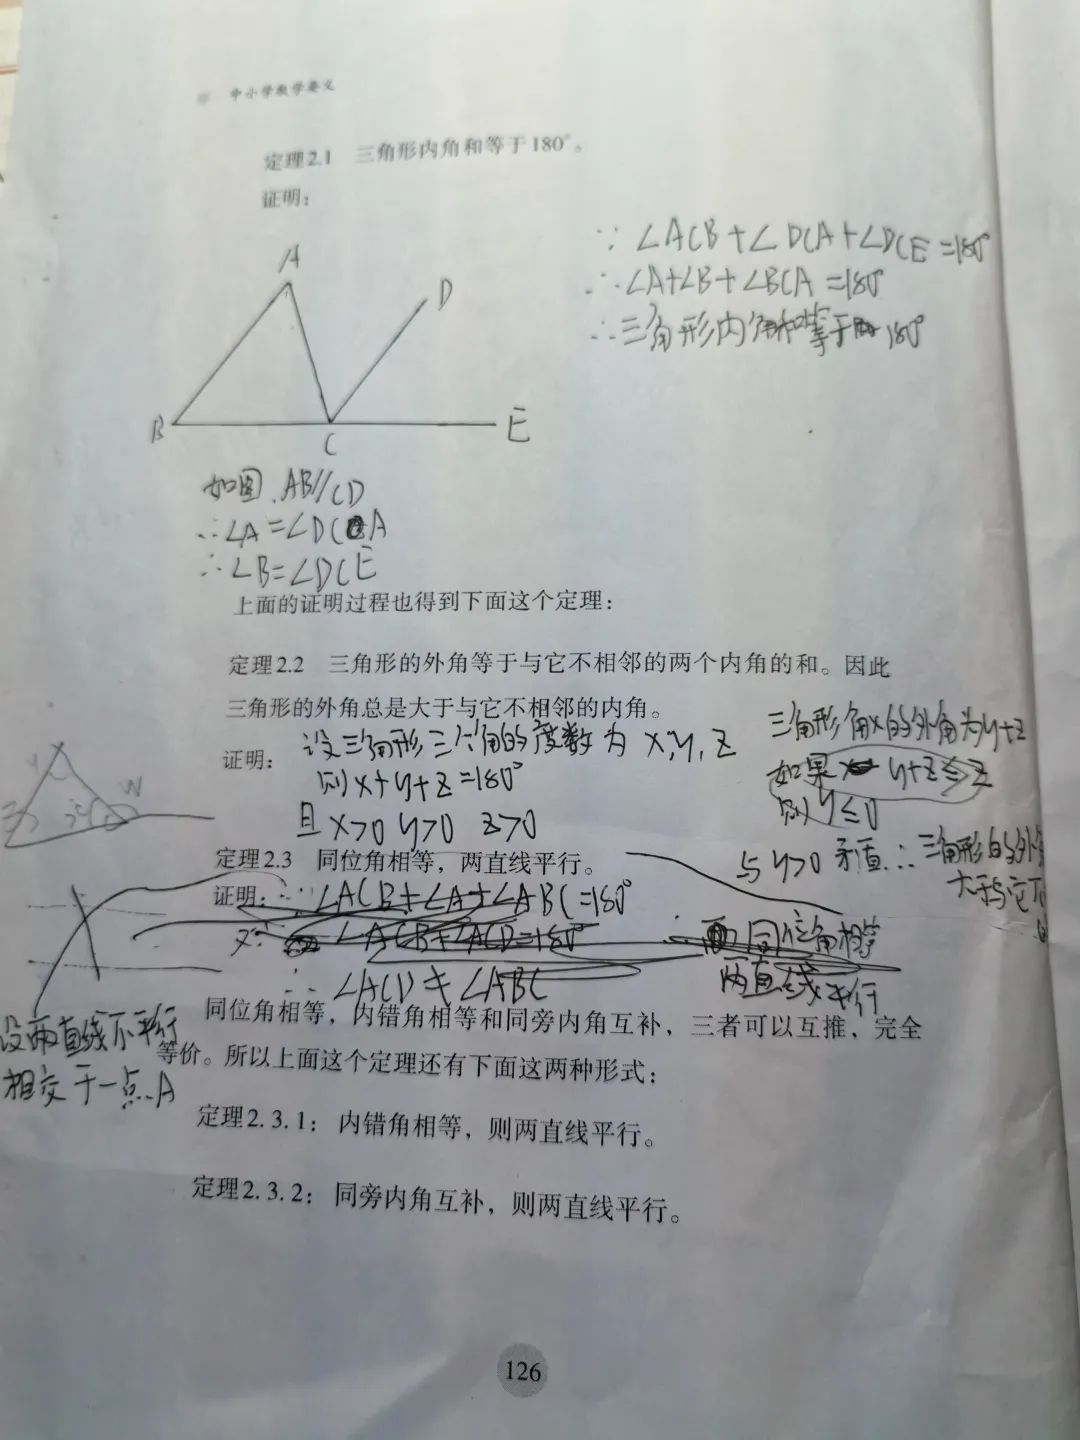 中小学数学要义
定理2.1 三角形内角和等于180°。
证明：
A
D
B
C
E
∵ ∠ACB+∠DCA+∠DCE=180°
∴∠A+∠B+∠BCA=180°
∴三角形内角和等于180°
如图，AB//CD
∴∠A=∠DCA
∴∠B=∠DCE
上面的证明过程也得到下面这个定理：
定理2.2 三角形的外角等于与它不相邻的两个内角的和。因此
三角形的外角总是大于与它不相邻的内角。
证明：
设三角形三个角的度数为x,y,z
则x+y+z=180°
且x>0 y>0 z>0
三角形角x的外角为y+z
如果y+z≤z
则y≤0
与y>0矛盾∴三角形的外角
大于与它不
定理2.3 同位角相等，两直线平行。
证明：
∵∠ACB+∠A+∠ABC=180°
又∵ ∠ACB+∠ACD=180°
∴ ∠ACD≠∠ABC
∴同位角相等
两直线平行
设两直线不平行
相交于一点A
同位角相等，内错角相等和同旁内角互补，三者可以互推，完全
等价。所以上面这个定理还有下面这两种形式：
定理2.3.1：内错角相等，则两直线平行。
定理2.3.2：同旁内角互补，则两直线平行。
126